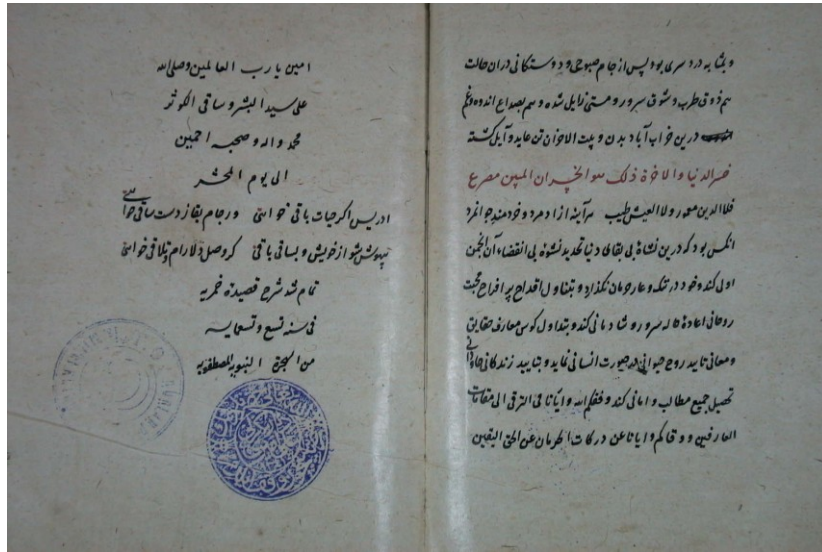 و بمثابه درد سری بود پس از جام صبوحی و دوستکانی در ان حالت
هم ذوق طرب و شوق سرور و مستی زایل شده و هم بصداع اندوه و غم
درین خراب آباد بدن و بیت الاحزان تن عاید و آیل کشته
خسر الدنیا والاخرة ذلک هو الخسران المبین مصرع
فلا الدین معمور ولا العیش طیب هر آینه ازاد مرد و خردمند جوانمرد
انکس بود که درین نشاة بی بقای دنیا تجدید نشوه بی انقضاء آن انجمن
اولی کند و خود در ننک و عار حرمان نکذارد و بتناول اقداح پر افراح محبت
روحانی اعادة حاله سرور و شادمانی کند و بتداول کوس معارف حقایق
و معانی تایید روح حیوانی در صورت انسانی نماید و بتایید زندکانی جاودانی
تحصیل جمیع مطالب و امانی کند وفقکم الله و ایانا فی الترقی الی مقامات
العارفین و وقاکم و ایانا عن درکات الحرمان عن الحق الیقین
امین یا رب العالمین وصلی الله
علی سید البشر و ساقی الکوثر
محمد واله وصحبه اجمعین
الی یوم المحشر
ادریس اکر حیات باقی خواهی ور جام بقا ز دست ساقی خواهی
بیهوش شو از خویش و بساقی باقی کر وصل دلارام تلاقی خواهی
تمام شد شرح قصیدة خمریه
فی سنه تسع و تسعمایه
من الهجرة النبویه المصطفویه